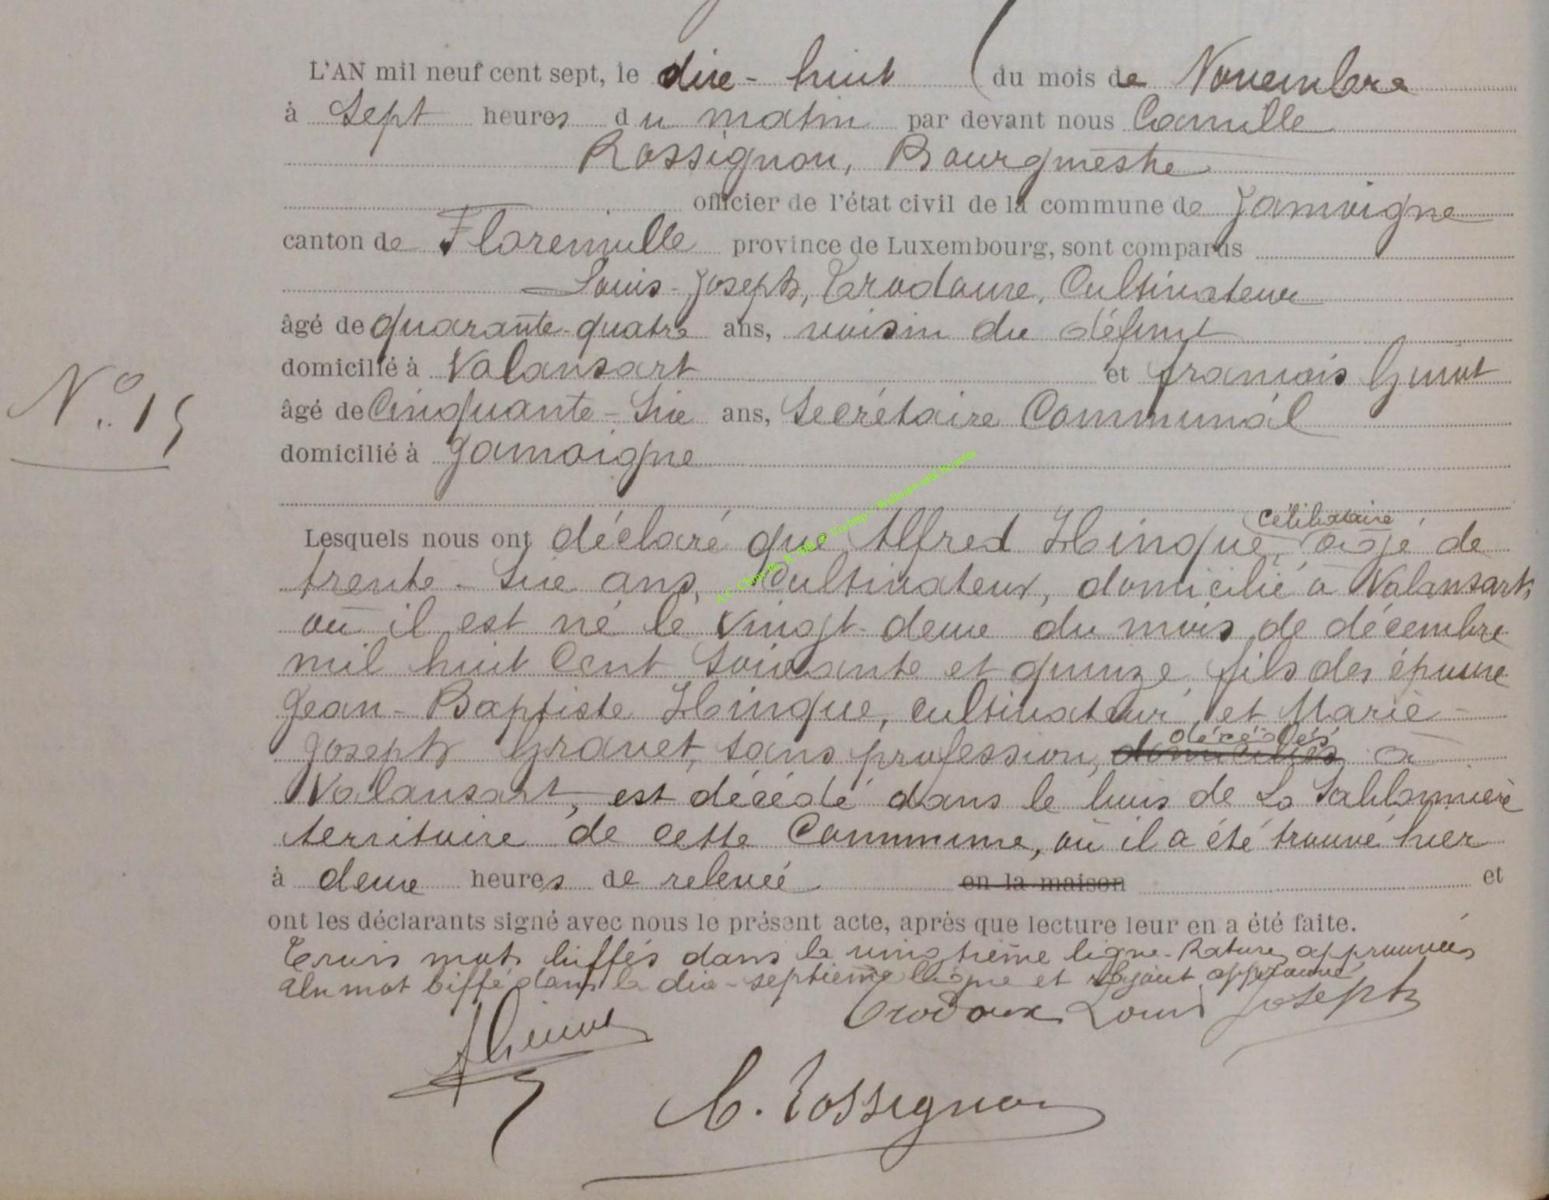 L'AN mil neuf cent sept, le dix-huit du mois de Novembre
à Sept heures du matin par devant nous Camille
Rossignon, Bourgmestre
officier de l'état civil de la commune de Jamoigne
canton de Florenville province de Luxembourg, sont comparus
Louis-Joseph, Trodoux, Cultivateur
âgé de quarante-quatre ans, voisin du défunt
domicilié à Valansart et François Guiot
N° 15
âgé de Cinquante-Six ans, Secrétaire Communal
domicilié à Jamoigne
Lesquels nous ont déclaré que Alfred Hinque, célibataire âgé de
trente-Six ans, Cultivateur, domicilié à Valansart,
où il est né le vingt-deux du mois de décembre
mil huit Cent Soixante et quinze, fils des époux
Jean-Baptiste Hinque, cultivateur, et Marie-
Joseph Gravet, sans profession, domiciliés décédés à
Valansart, est décédé dans le bois de La Sablonnière
territoire de cette Commune, où il a été trouvé hier
à deux heures de relevée en la maison et
ont les déclarants signé avec nous le présent acte, après que lecture leur en a été faite.
Trois mots biffés dans la vingtième ligne. Ratures approuvées
Un mot biffé dans la dix-septième ligne et rajout approuvé
Trodoux Louis Joseph
C. Rossignon